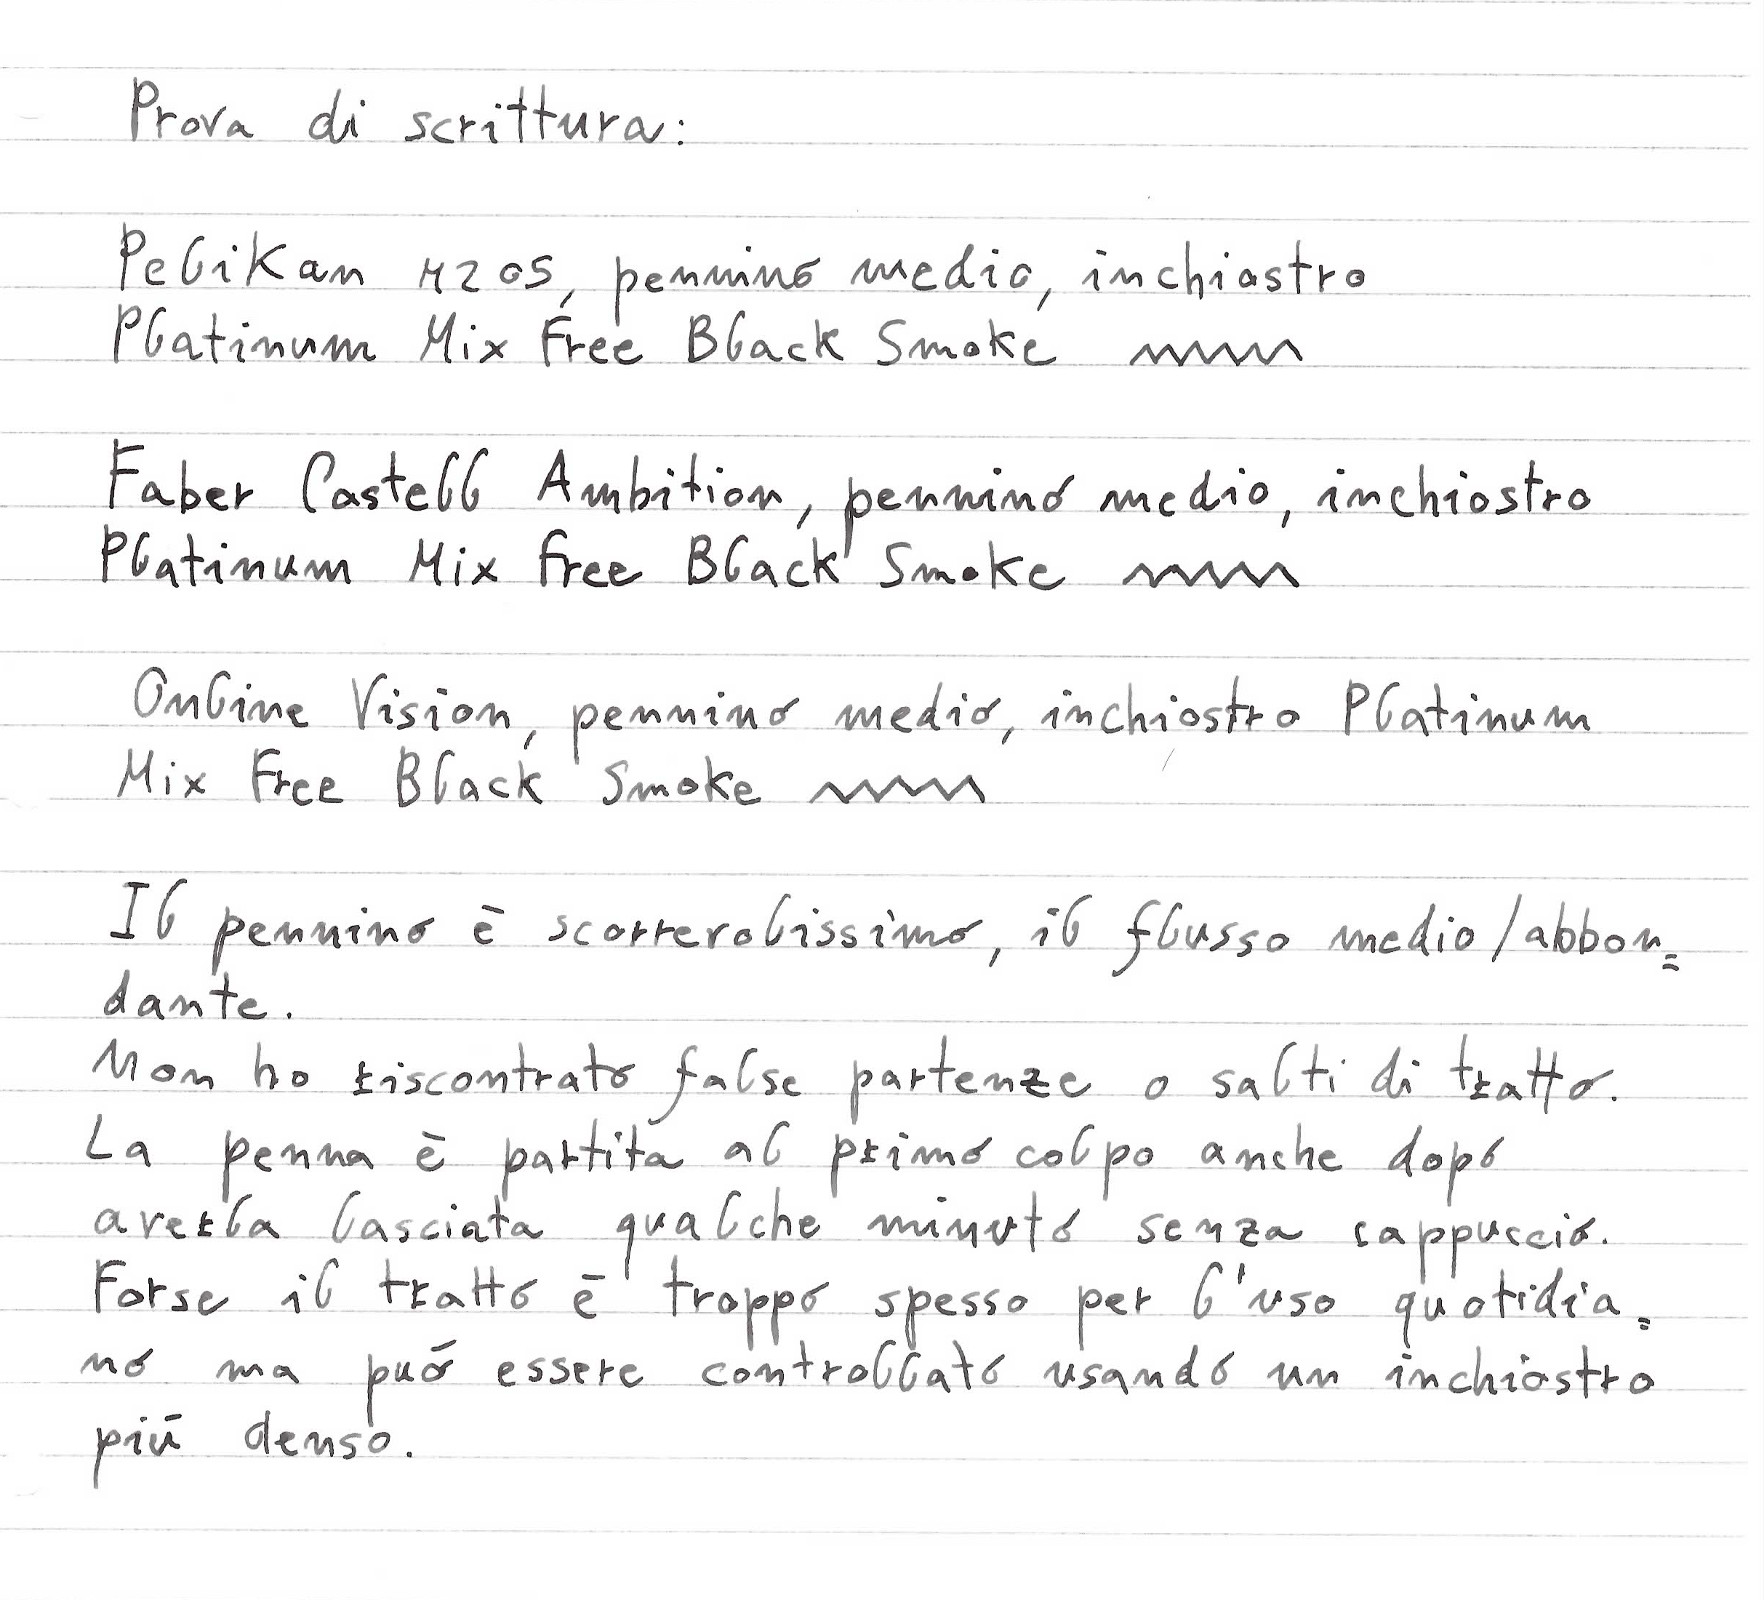 Prova di scrittura:
Pelikan M205, pennino medio, inchiostro
Platinum Mix Free Black Smoke
Faber Castell Ambition, pennino medio, inchiostro
Platinum Mix Free Black Smoke
Online Vision, pennino medio, inchiostro Platinum
Mix Free Black Smoke
Il pennino è scorrevolissimo, il flusso medio/abbon=
dante.
Non ho riscontrato false partenze o salti di tratto.
La penna è partita al primo colpo anche dopo
averla lasciata qualche minuto senza cappuccio.
Forse il tratto è troppo spesso per l'uso quotidia=
no ma può essere controllato usando un inchiostro
più denso.